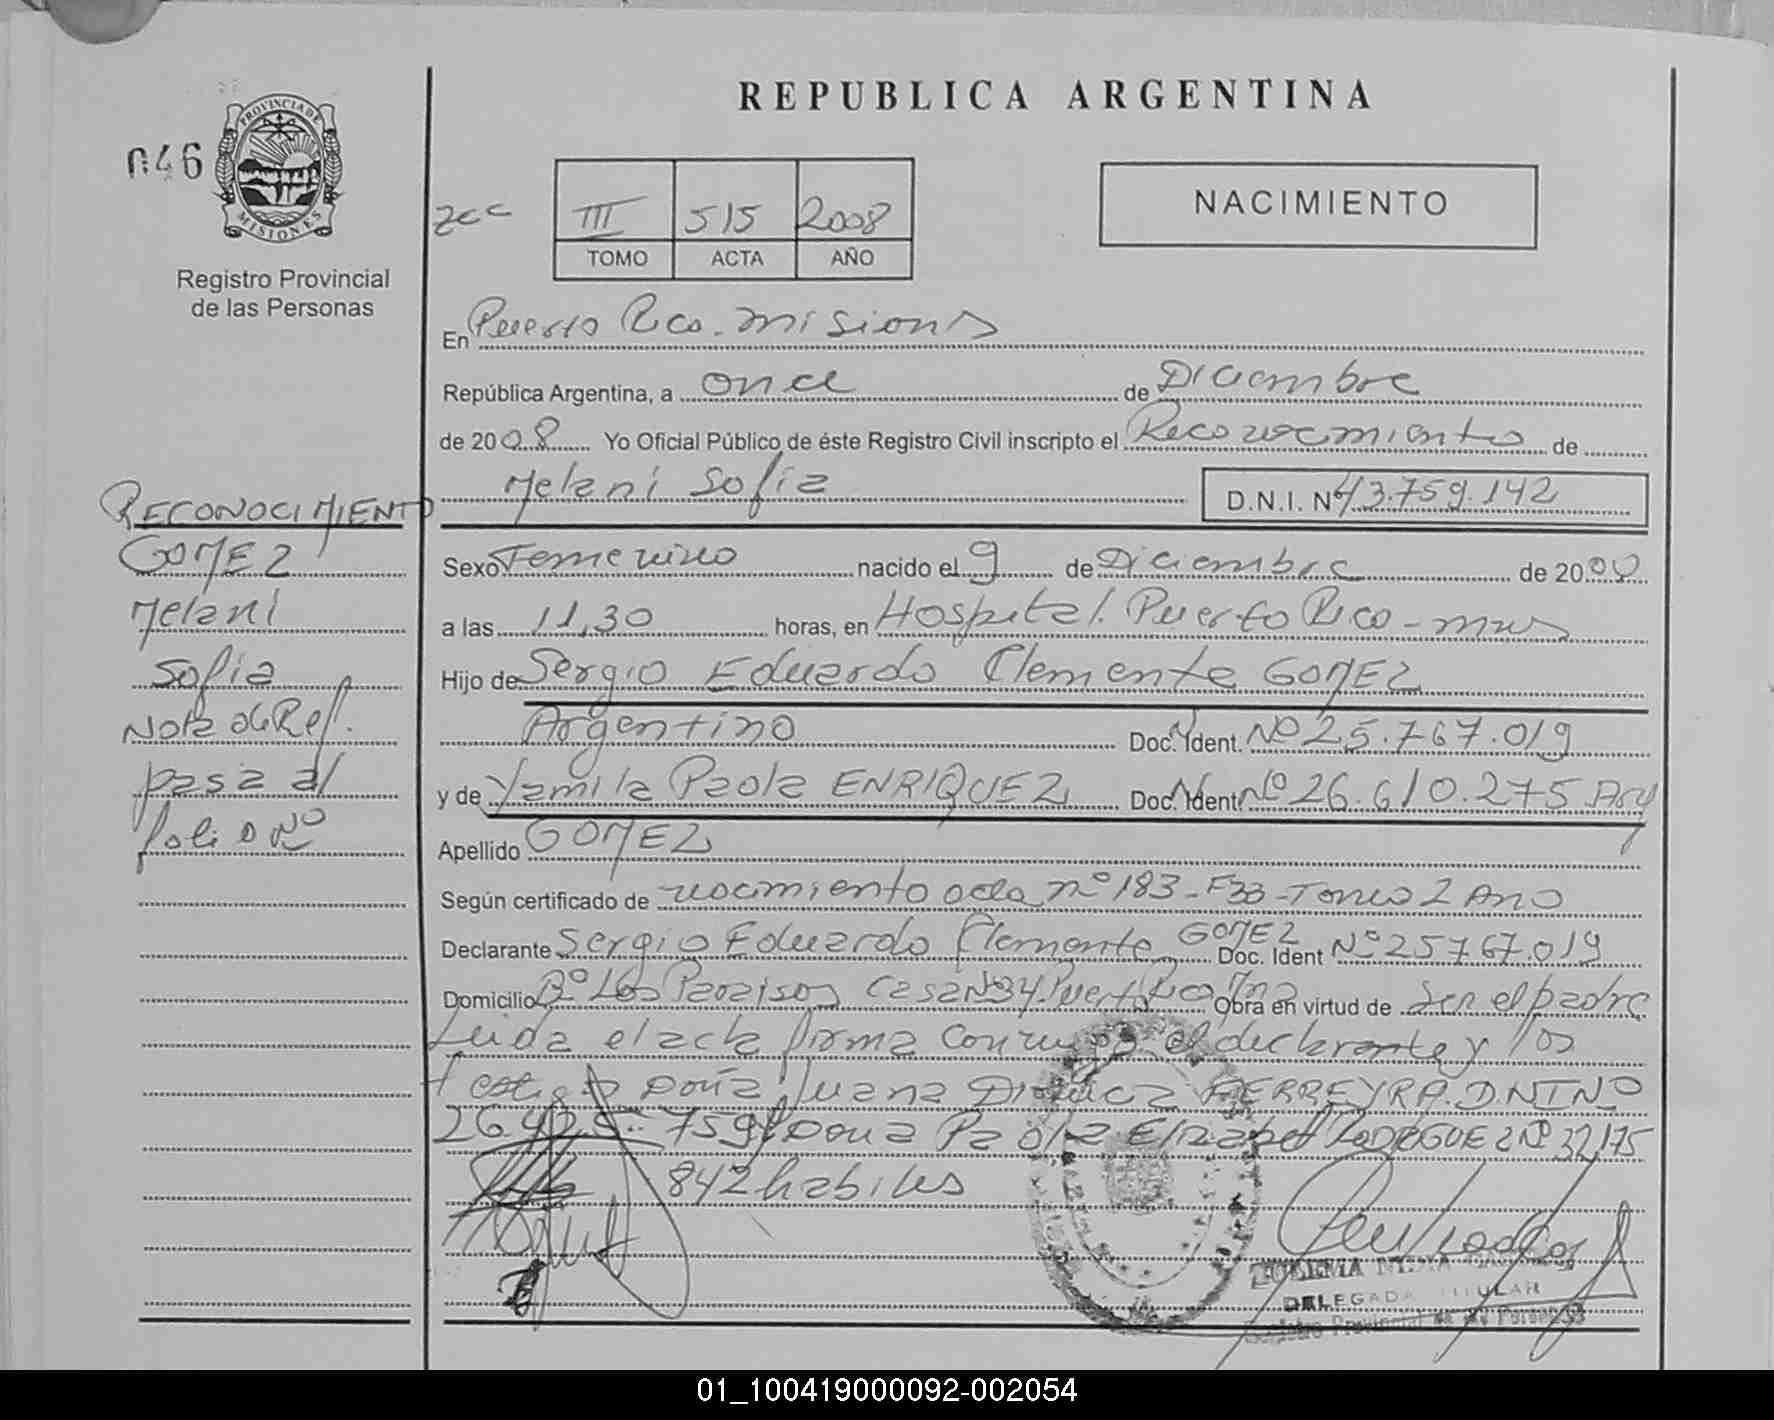 REPUBLICA ARGENTINA
046
PROVINCIA DE
MISIONES
Registro Provincial
de las Personas
III 515 2008
TOMO ACTA AÑO
NACIMIENTO
En Puerto Rico - Misiones
República Argentina, a once de Diciembre
de 2008 Yo Oficial Público de éste Registro Civil inscripto el Reconocimiento de
Melani Sofia D.N.I. Nº 43.759.142
RECONOCIMIENTO
GOMEZ
Melani
Sofia
Nota de Ref.
pasa al
folio Nº
Sexo Femenino nacido el 9 de Diciembre de 2000
a las 11,30 horas, en Hospital. Puerto Rico - Mnes
Hijo de Sergio Eduardo Clemente GOMEZ
Argentino Doc. Ident. Nº 25.767.019
y de Yamila Paola ENRIQUEZ Doc. Ident. Nº 26.610.275 Arg
Apellido GOMEZ
Según certificado de nacimiento acta nº 183 - F33 - Tomo I Año
Declarante Sergio Eduardo Clemente GOMEZ Doc. Ident Nº 25767.019
Domicilio Bº Los Paraisos Casa Nº34 Puerto Rico Obra en virtud de Ser el padre
Leida el acta firma conmigo el declarante y los
testigos Doña Juana FERREYRA. D.N.I Nº
26.425.759 y Dona Paola Elizabet RODRIGUEZ Nº 32.175
842 habiles
DELEGADA TITULAR
Registro Provincial de las Personas
01_100419000092-002054